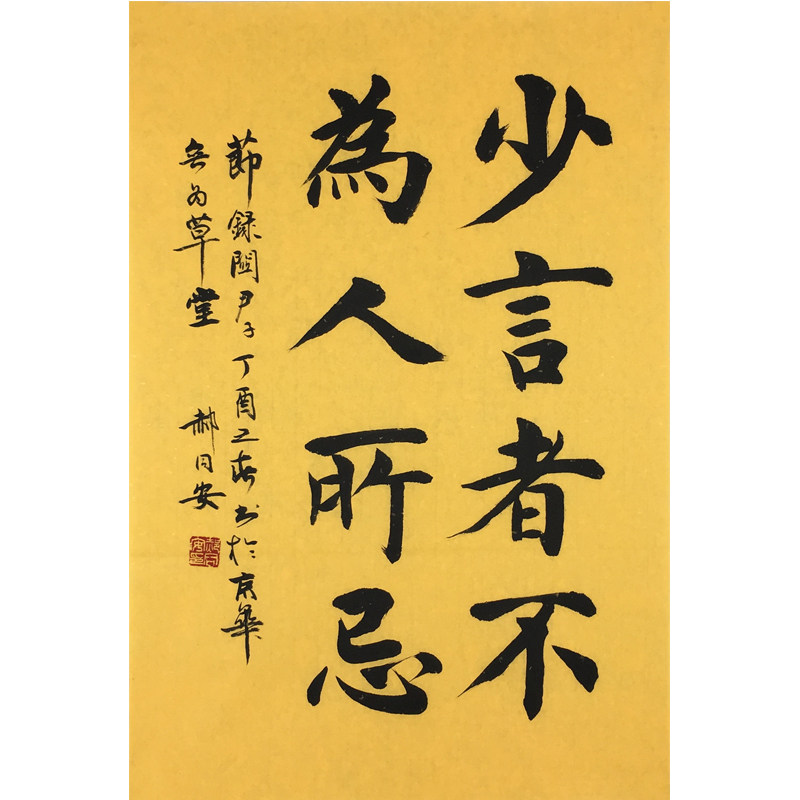 少言者不
為人所忌
節録關尹子丁酉之春书於京華
无为草堂 郝同安